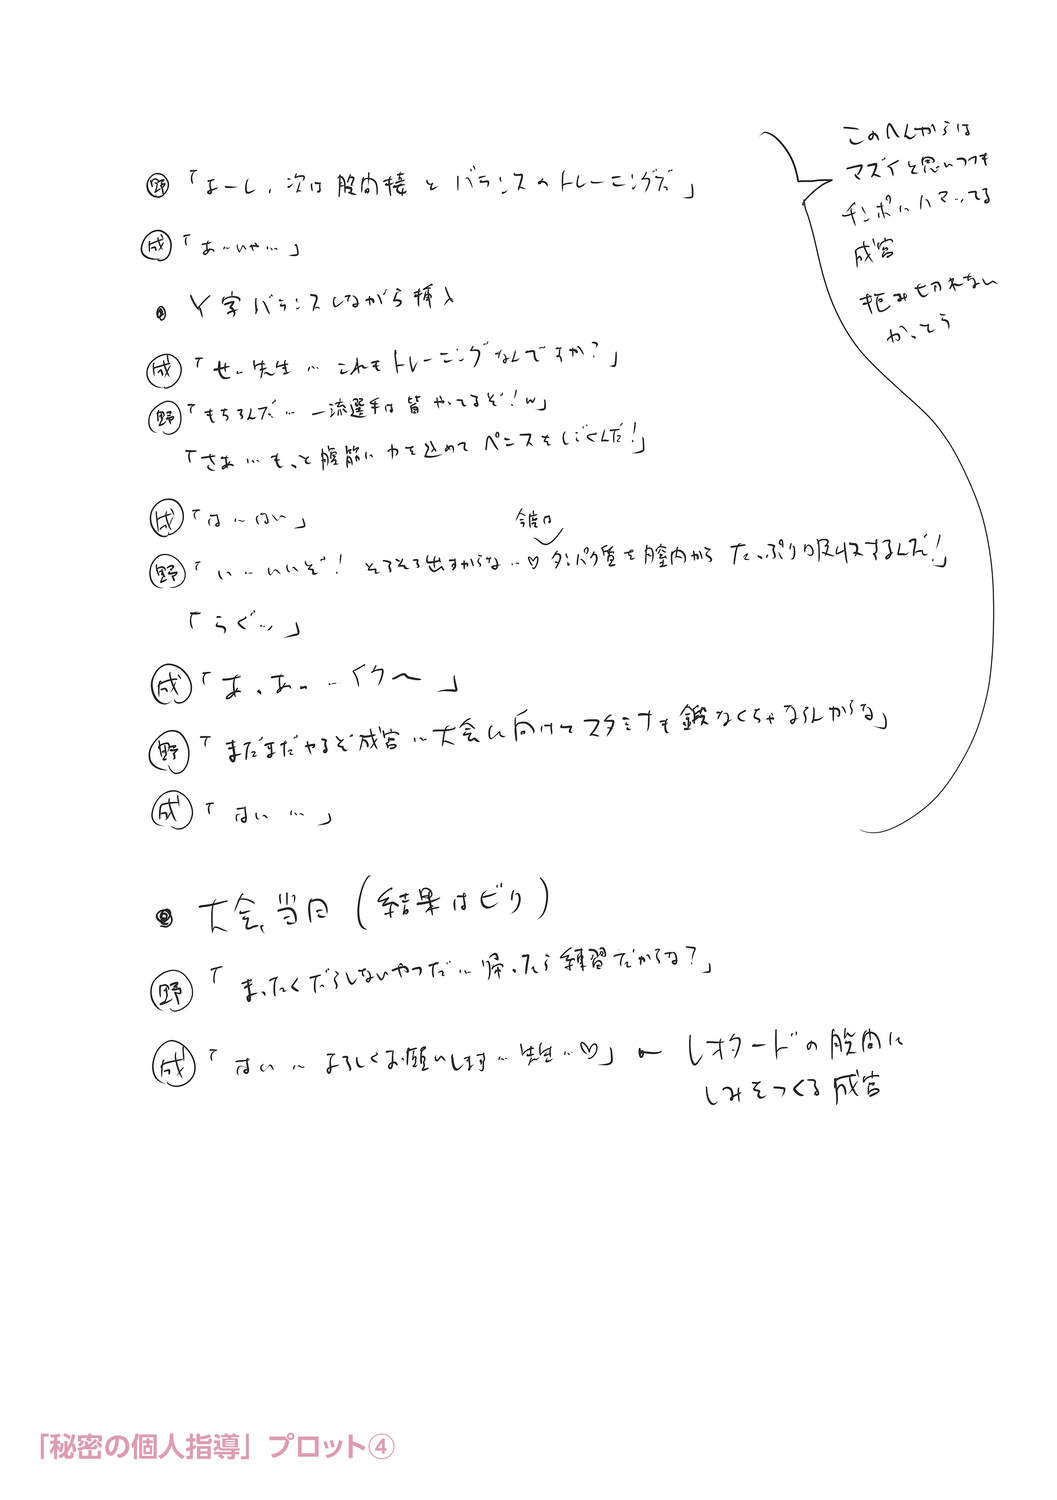 野「よーし、次は股関接とバランスのトレーニングだ」
成「あ…いや…」
● Y字バランスしながら挿入
成「せ…先生… これもトレーニングなんですか？」
野「もちろんだ… 一流選手は皆やってるぞ！w」
「さあ… もっと腹筋に力を込めてペニスをしごくんだ！」
成「は…はい」
今度は
野「い…いいぞ！ そろそろ出すからな…♡ タンパク質を膣内からたっぷり吸収するんだ！」
「らぐ…」
成「あ、あ… イク〜」
野「まだまだやるぞ成宮… 大会に向けてスタミナも鍛なくちゃならんからな」
成「はい …」
このへんからは
マズイと思いつつも
チンポにハマってる
成宮
拒み切れない
かっとう
● 大会、当日（結果はビリ）
野「まったくだらしないやつだ… 帰ったら練習だからな？」
成「はい… よろしくお願いします… 先生…♡」← レオタードの股間に
しみをつくる成宮
「秘密の個人指導」プロット④